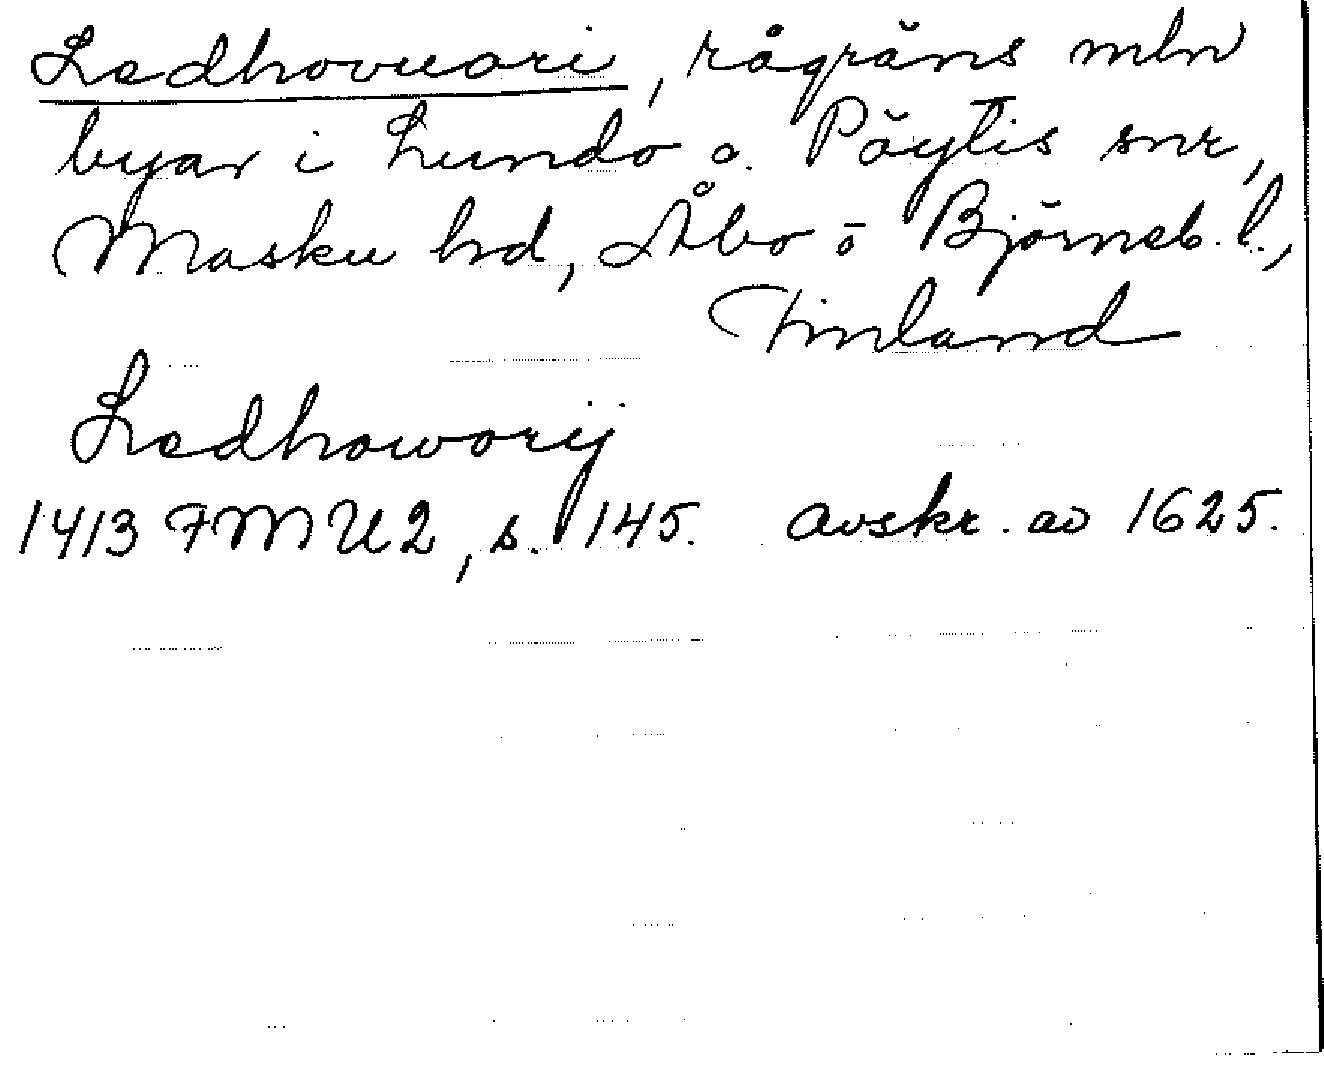 Ladhovuori, rågräns mln
byar i Lundo o. Pöytis snr,
Masku hd, Åbo o Björneb. l.,
Finland
Ladhoworij
1413 FMU 2, s. 145. avskr. av 1625.